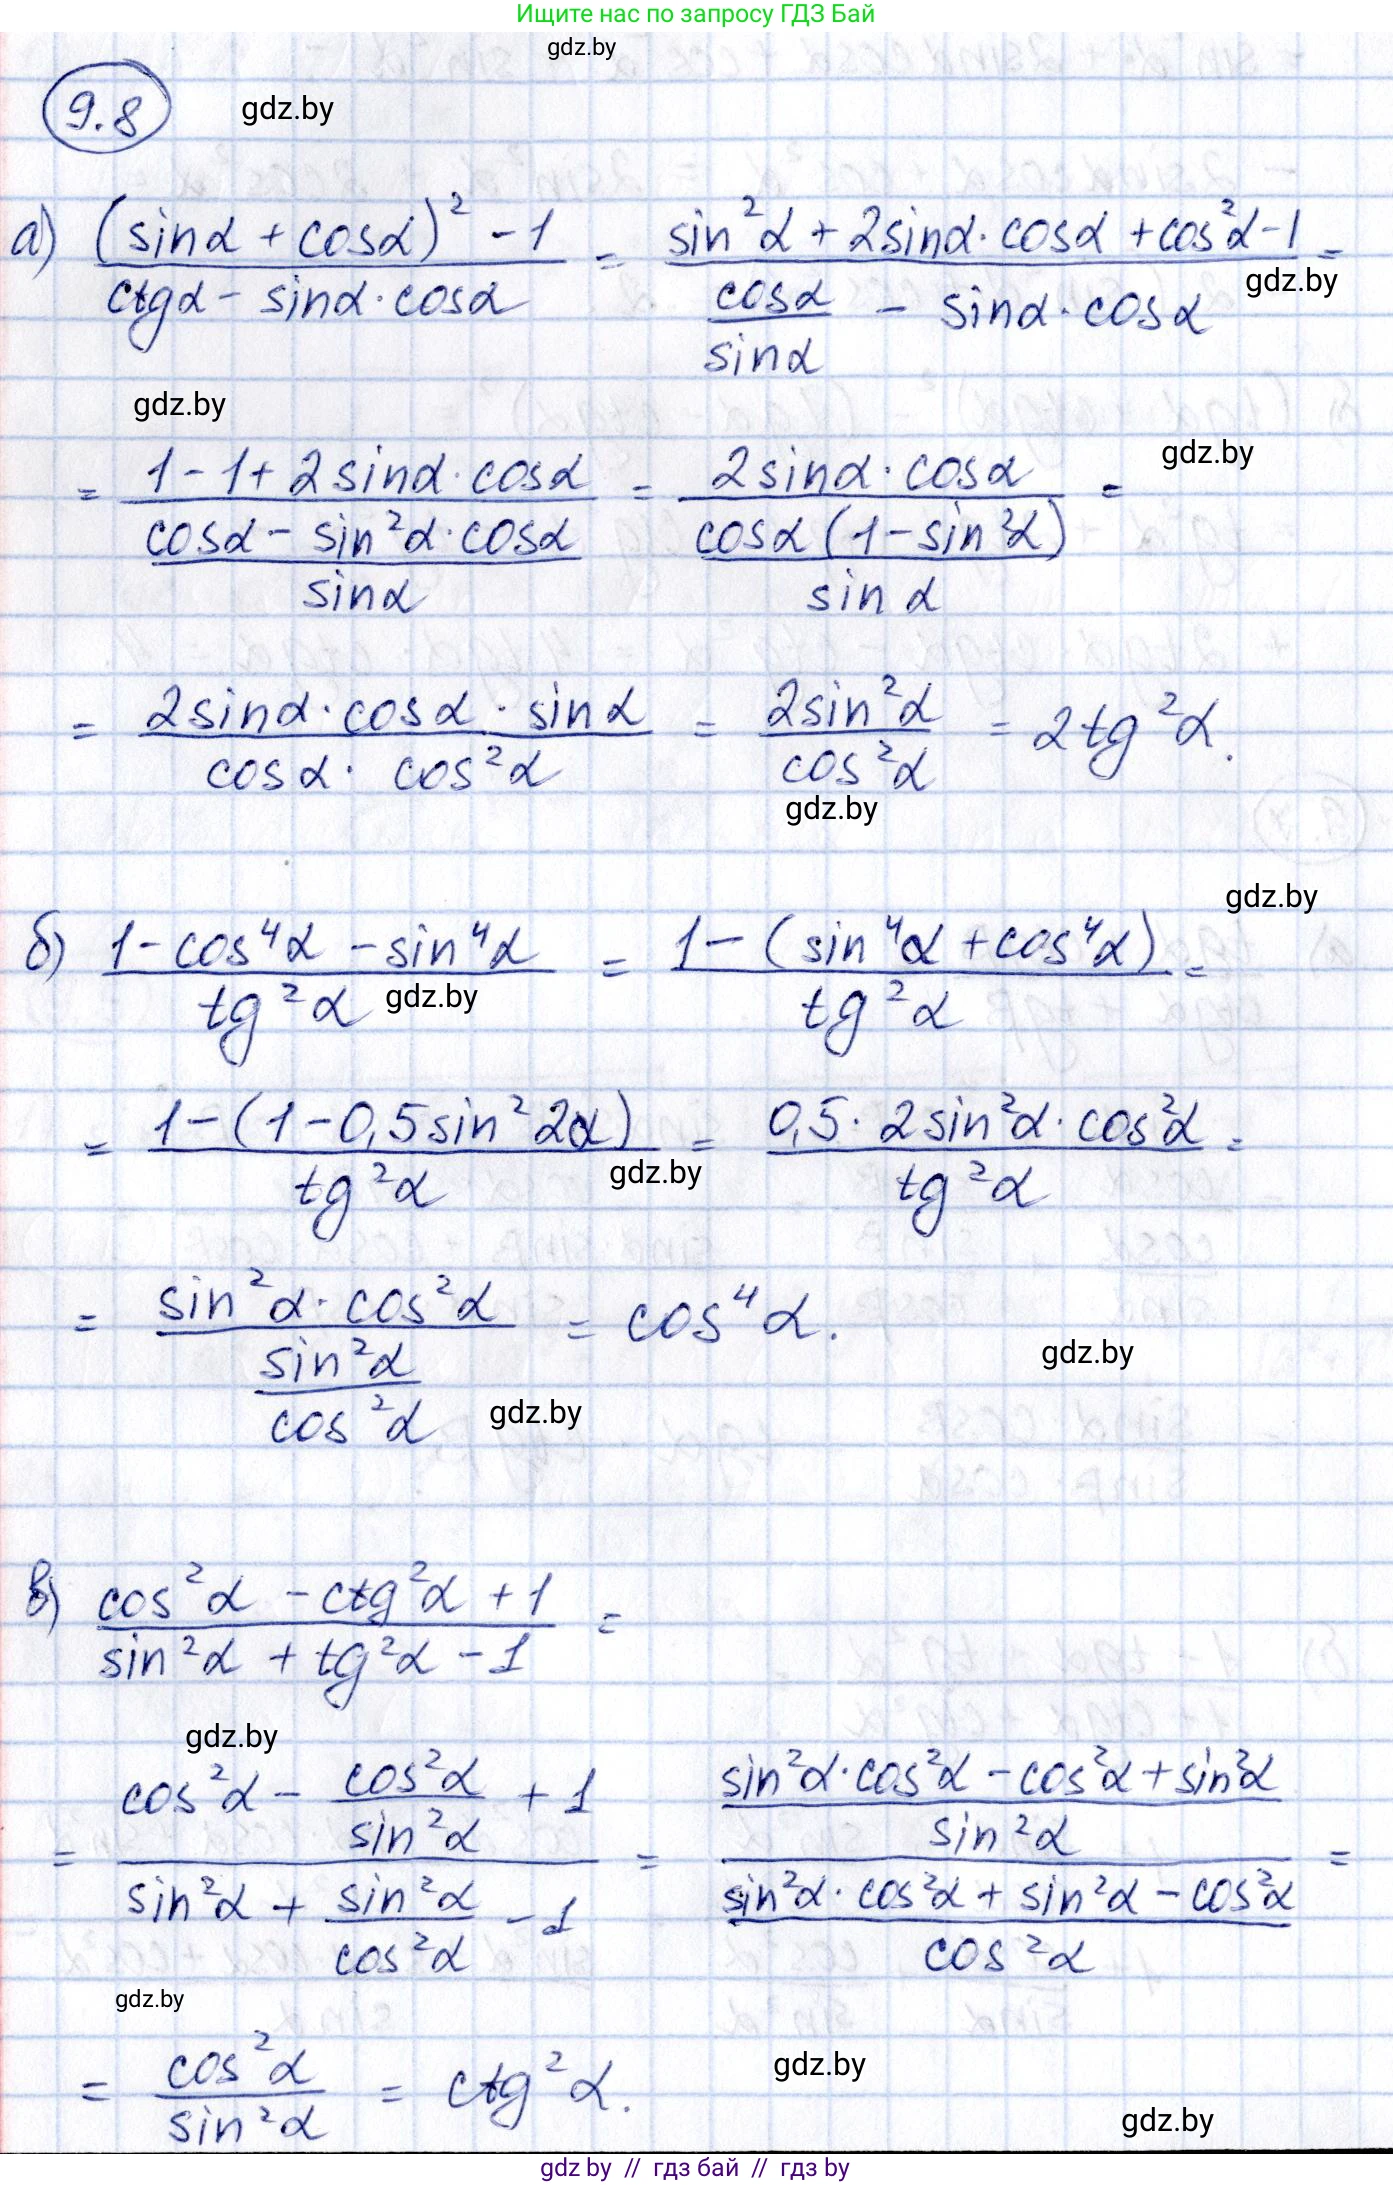 Ищите нас по запросу ГДЗ Бай
gdz.by
9.8 gdz.by
а) ((sinα + cosα)² - 1)/(ctgα - sinα·cosα) = (sin²α + 2sinα·cosα + cos²α - 1)/(cosα/sinα - sinα·cosα) =
gdz.by
gdz.by
gdz.by
= (1 - 1 + 2sinα·cosα)/((cosα - sin²α·cosα)/sinα) = (2sinα·cosα)/((cosα(1 - sin²α))/sinα) =
= (2sinα·cosα·sinα)/(cosα·cos²α) = 2sin²α/cos²α = 2tg²α.
gdz.by
gdz.by
б) (1 - cos⁴α - sin⁴α)/tg²α = (1 - (sin⁴α + cos⁴α))/tg²α =
gdz.by
= (1 - (1 - 0,5sin²2α))/tg²α = (0,5·2sin²α·cos²α)/tg²α =
gdz.by
= (sin²α·cos²α)/(sin²α/cos²α) = cos⁴α.
gdz.by
gdz.by
в) (cos²α - ctg²α + 1)/(sin²α + tg²α - 1) =
gdz.by
= (cos²α - cos²α/sin²α + 1)/(sin²α + sin²α/cos²α - 1) = ((sin²α·cos²α - cos²α + sin²α)/sin²α)/((sin²α·cos²α + sin²α - cos²α)/cos²α) =
gdz.by
= cos²α/sin²α = ctg²α.
gdz.by
gdz.by
gdz.by // гдз бай // гдз by